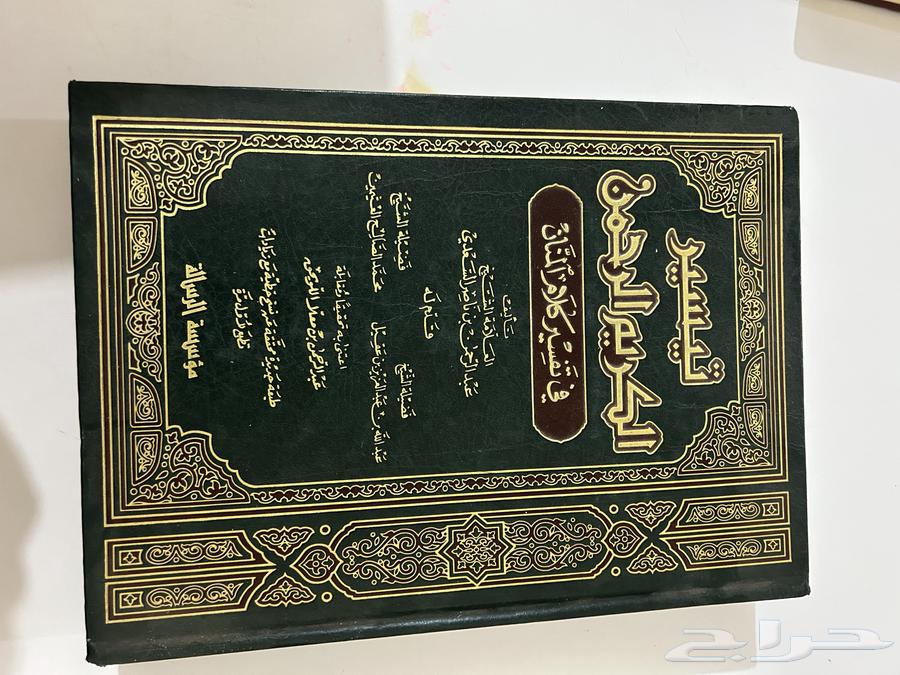 تيسير
الكريم الرحمن
في تفسير كلام المنان
تأليف
العلامة الشيخ
عبد الرحمن بن ناصر السعدي
قدم له
فضيلة الشيخ
عبد الله بن عبد العزيز بن عقيل
فضيلة الشيخ
محمد الصالح العثيمين
اعتنى به تحقيقا ومقابلة
عبد الرحمن بن معلا اللويحق
طبعة جديدة محققة
مؤسسة الرسالة
حراج